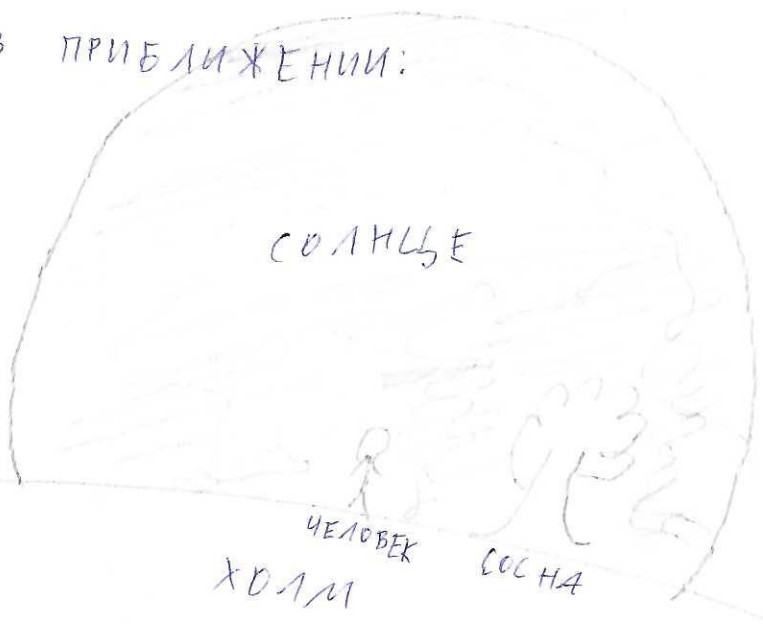 В ПРИБЛИЖЕНИИ:
СОЛНЦЕ
ЧЕЛОВЕК
СОСНА
ХОЛМ